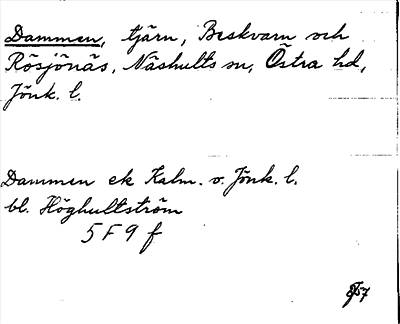 Dammen, tjärn, Beskvarn och
Rösjönäs, Näshults sn, Östra hd,
Jönk. l.
Dammen ek Kalm. o. Jönk. l.
bl. Höghultström
5 F 9 f
57